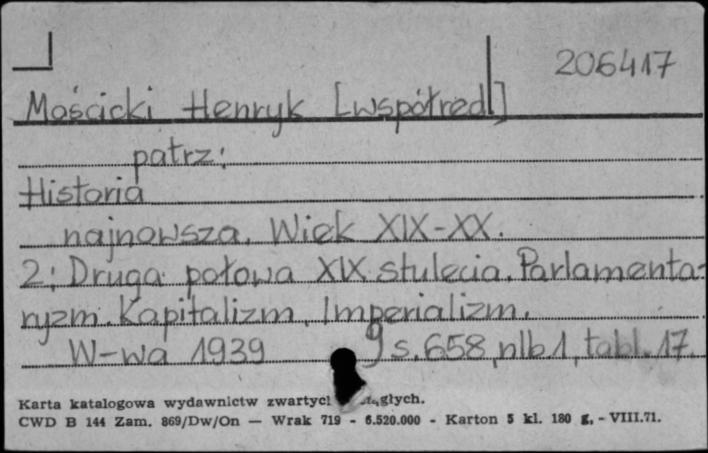 206417
Mościcki Henryk [współred.]
patrz:
Historia
najnowsza. Wiek XIX-XX.
2: Druga połowa XIX stulecia. Parlamenta-
ryzm. Kapitalizm. Imperializm.
W-wa 1939 s. 658, nlb 1, tabl. 17.
Karta katalogowa wydawnictw zwartych
CWD B 144 Zam. 869/Dw/On — Wrak 719 - 6.520.000 - Karton 5 kl. 180 g. - VIII.71.